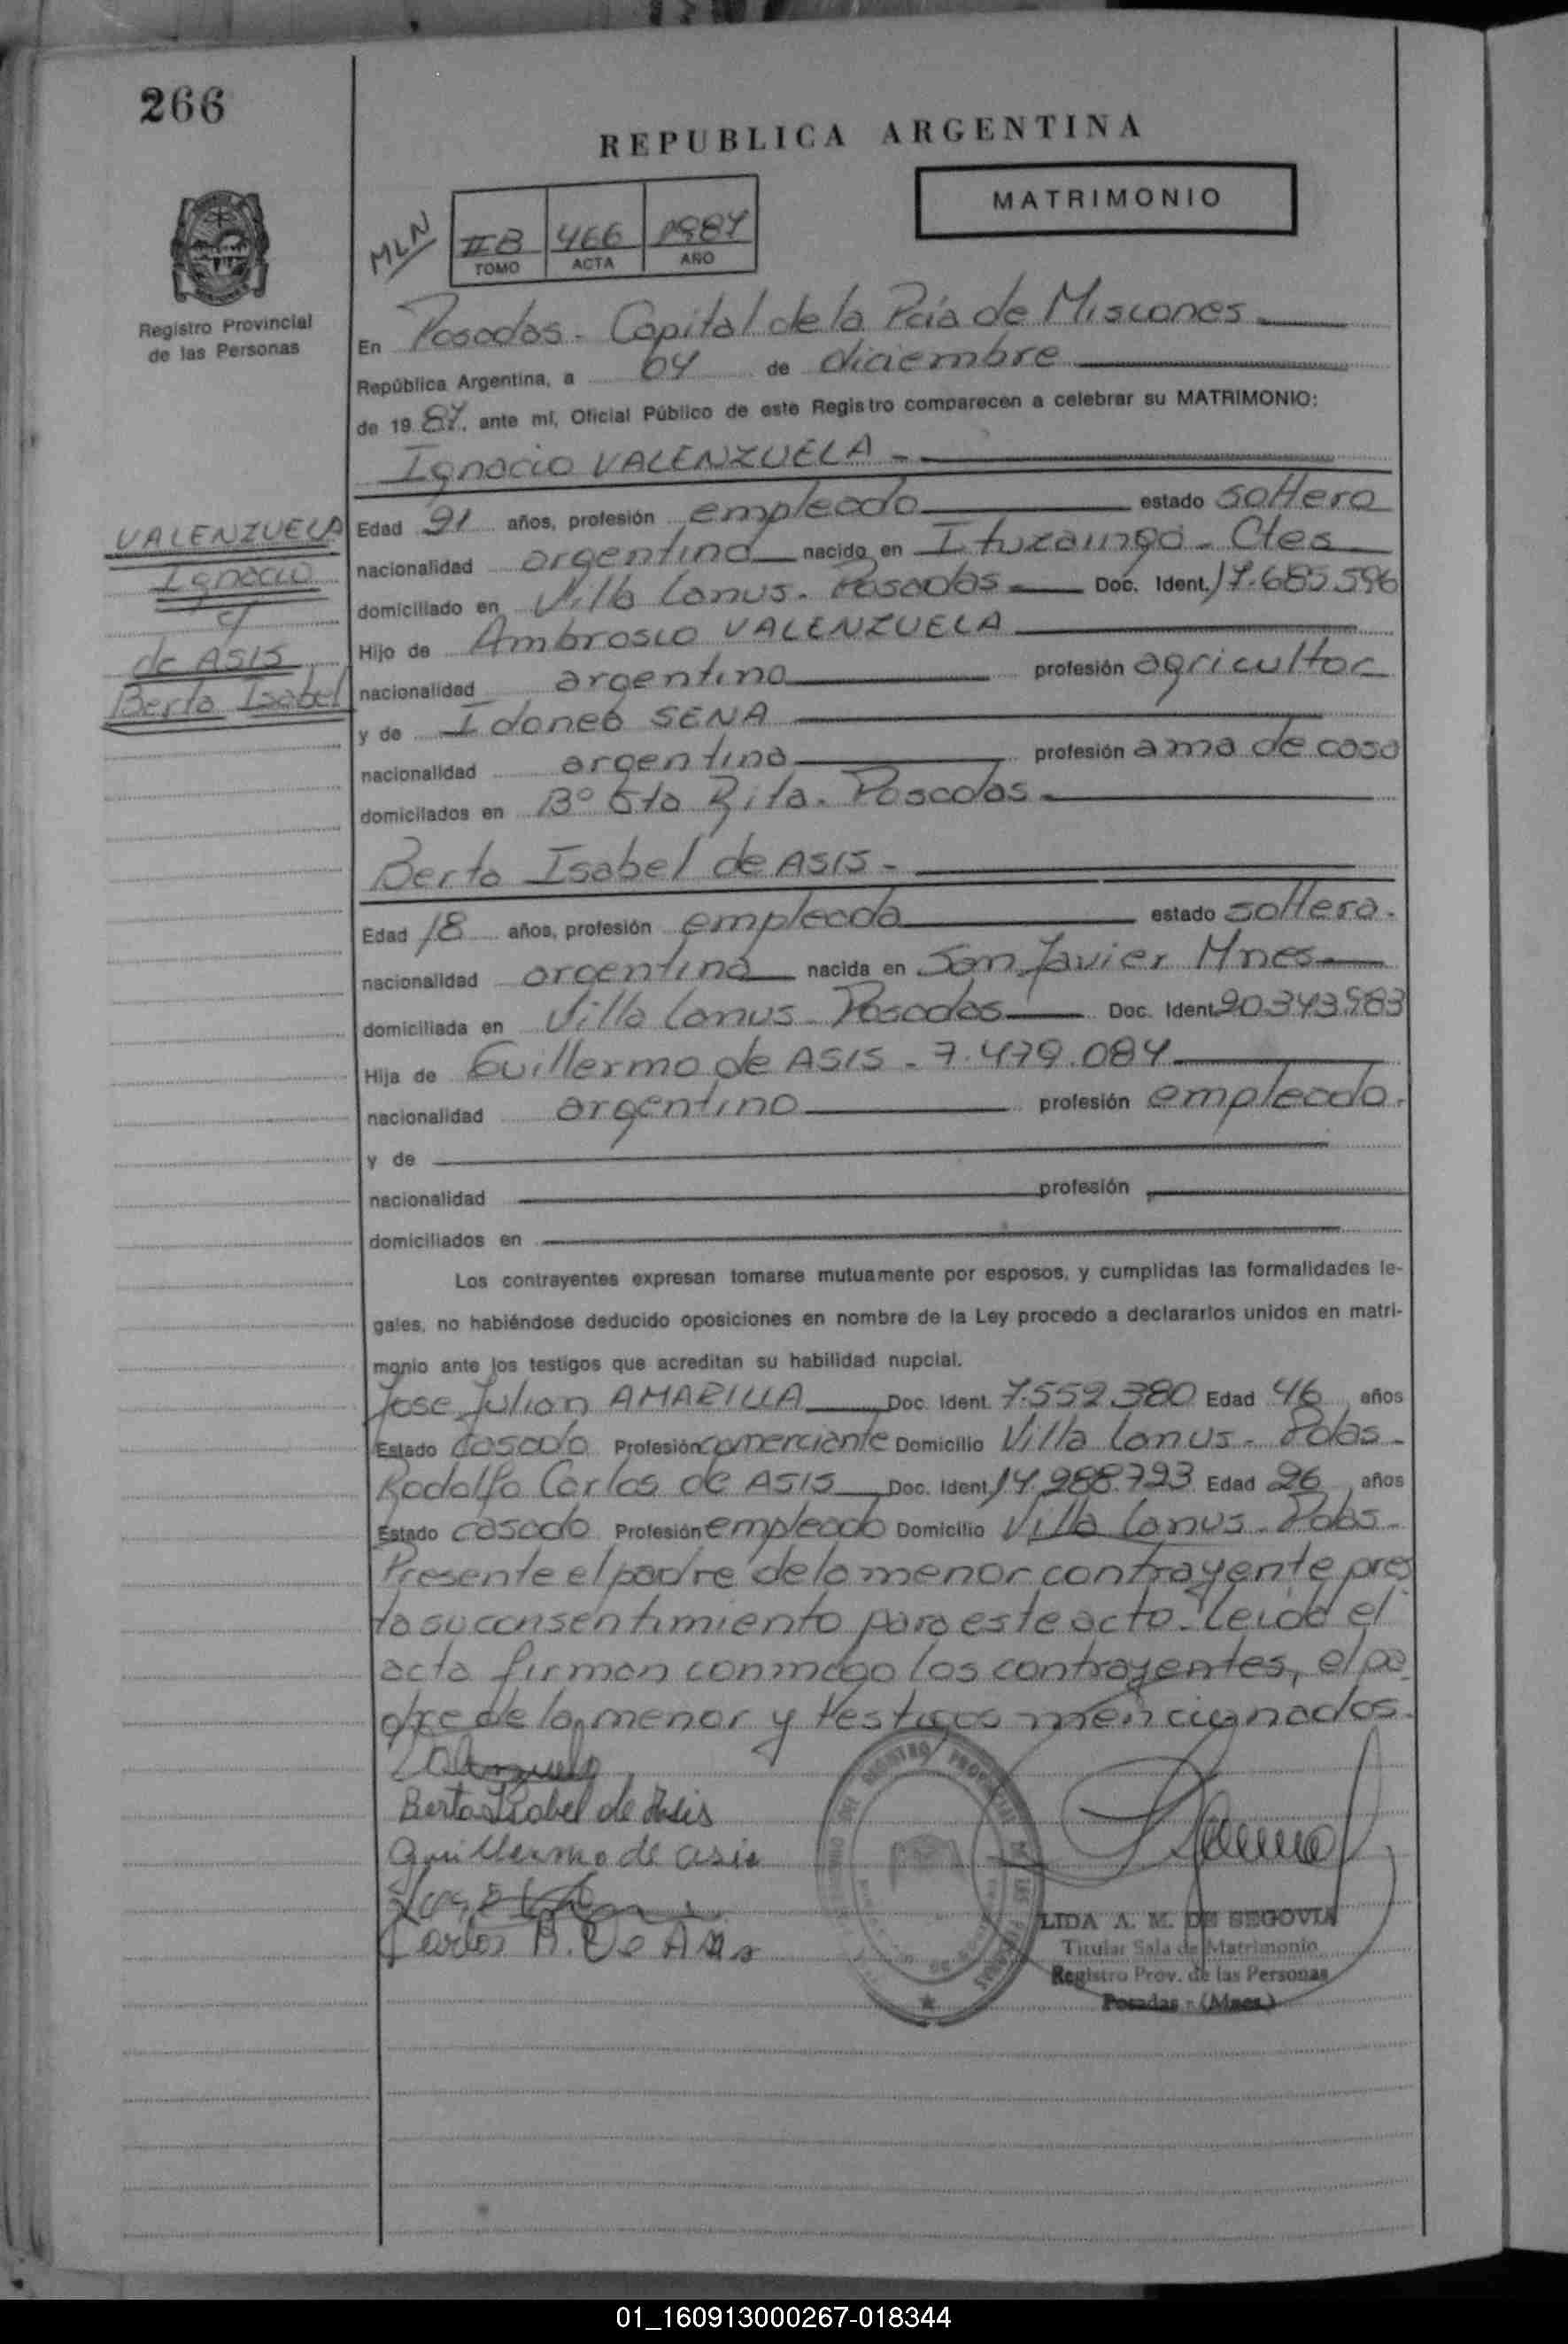 266
REPUBLICA ARGENTINA
MATRIMONIO
MLN
II B 466 1987
TOMO ACTA AÑO
Registro Provincial
de las Personas
En Posadas - Capital de la Pcia de Misiones
República Argentina, a 04 de diciembre
de 19 87, ante mí, Oficial Público de este Registro comparecen a celebrar su MATRIMONIO:
Ignacio VALENZUELA -
VALENZUELA
Ignacio
c/
de ASIS
Berta Isabel
Edad 21 años, profesión empleado estado soltero
nacionalidad argentina nacido en Ituzaingó - Ctes
domiciliado en Villa Lanus - Posadas Doc. Ident. 17.685.596
Hijo de Ambrosio VALENZUELA
nacionalidad argentino profesión agricultor
y de Idonea SENA
nacionalidad argentina profesión ama de casa
domicilados en B° Sta Rita - Posadas -
Berta Isabel de ASIS -
Edad 18 años, profesión empleada estado soltera.
nacionalidad argentina nacida en San Javier Mnes
domiciliada en Villa Lanus - Posadas Doc. Ident. 20.343.983
Hija de Guillermo de ASIS - 7.479.084
nacionalidad argentino profesión empleado.
y de
nacionalidad profesión
domiciliados en
Los contrayentes expresan tomarse mutuamente por esposos, y cumplidas las formalidades le-
gales, no habiéndose deducido oposiciones en nombre de la Ley procedo a declararlos unidos en matri-
monio ante los testigos que acreditan su habilidad nupcial.
Jose Julian AMARILLA Doc. Ident. 7.552.380 Edad 46 años
Estado casado Profesión comerciante Domicilio Villa Lanus - Pdas -
Rodolfo Carlos de ASIS Doc. Ident. 14.288.793 Edad 26 años
Estado casado Profesión empleado Domicilio Villa Lanus - Pdas -
Presente el padre de la menor contrayente pres
ta su consentimiento para este acto. Leida el
acta firman conmigo los contrayentes, el pa
dre de la menor y testigos mencionados.
Berta Isabel de Asis
Guillermo de asis
Carlos R. De Asis
LIDA A. M. DE SEGOVIA
Titular Sala de Matrimonio
Registro Prov. de las Personas
Posadas - (Mnes.)
01_160913000267-018344